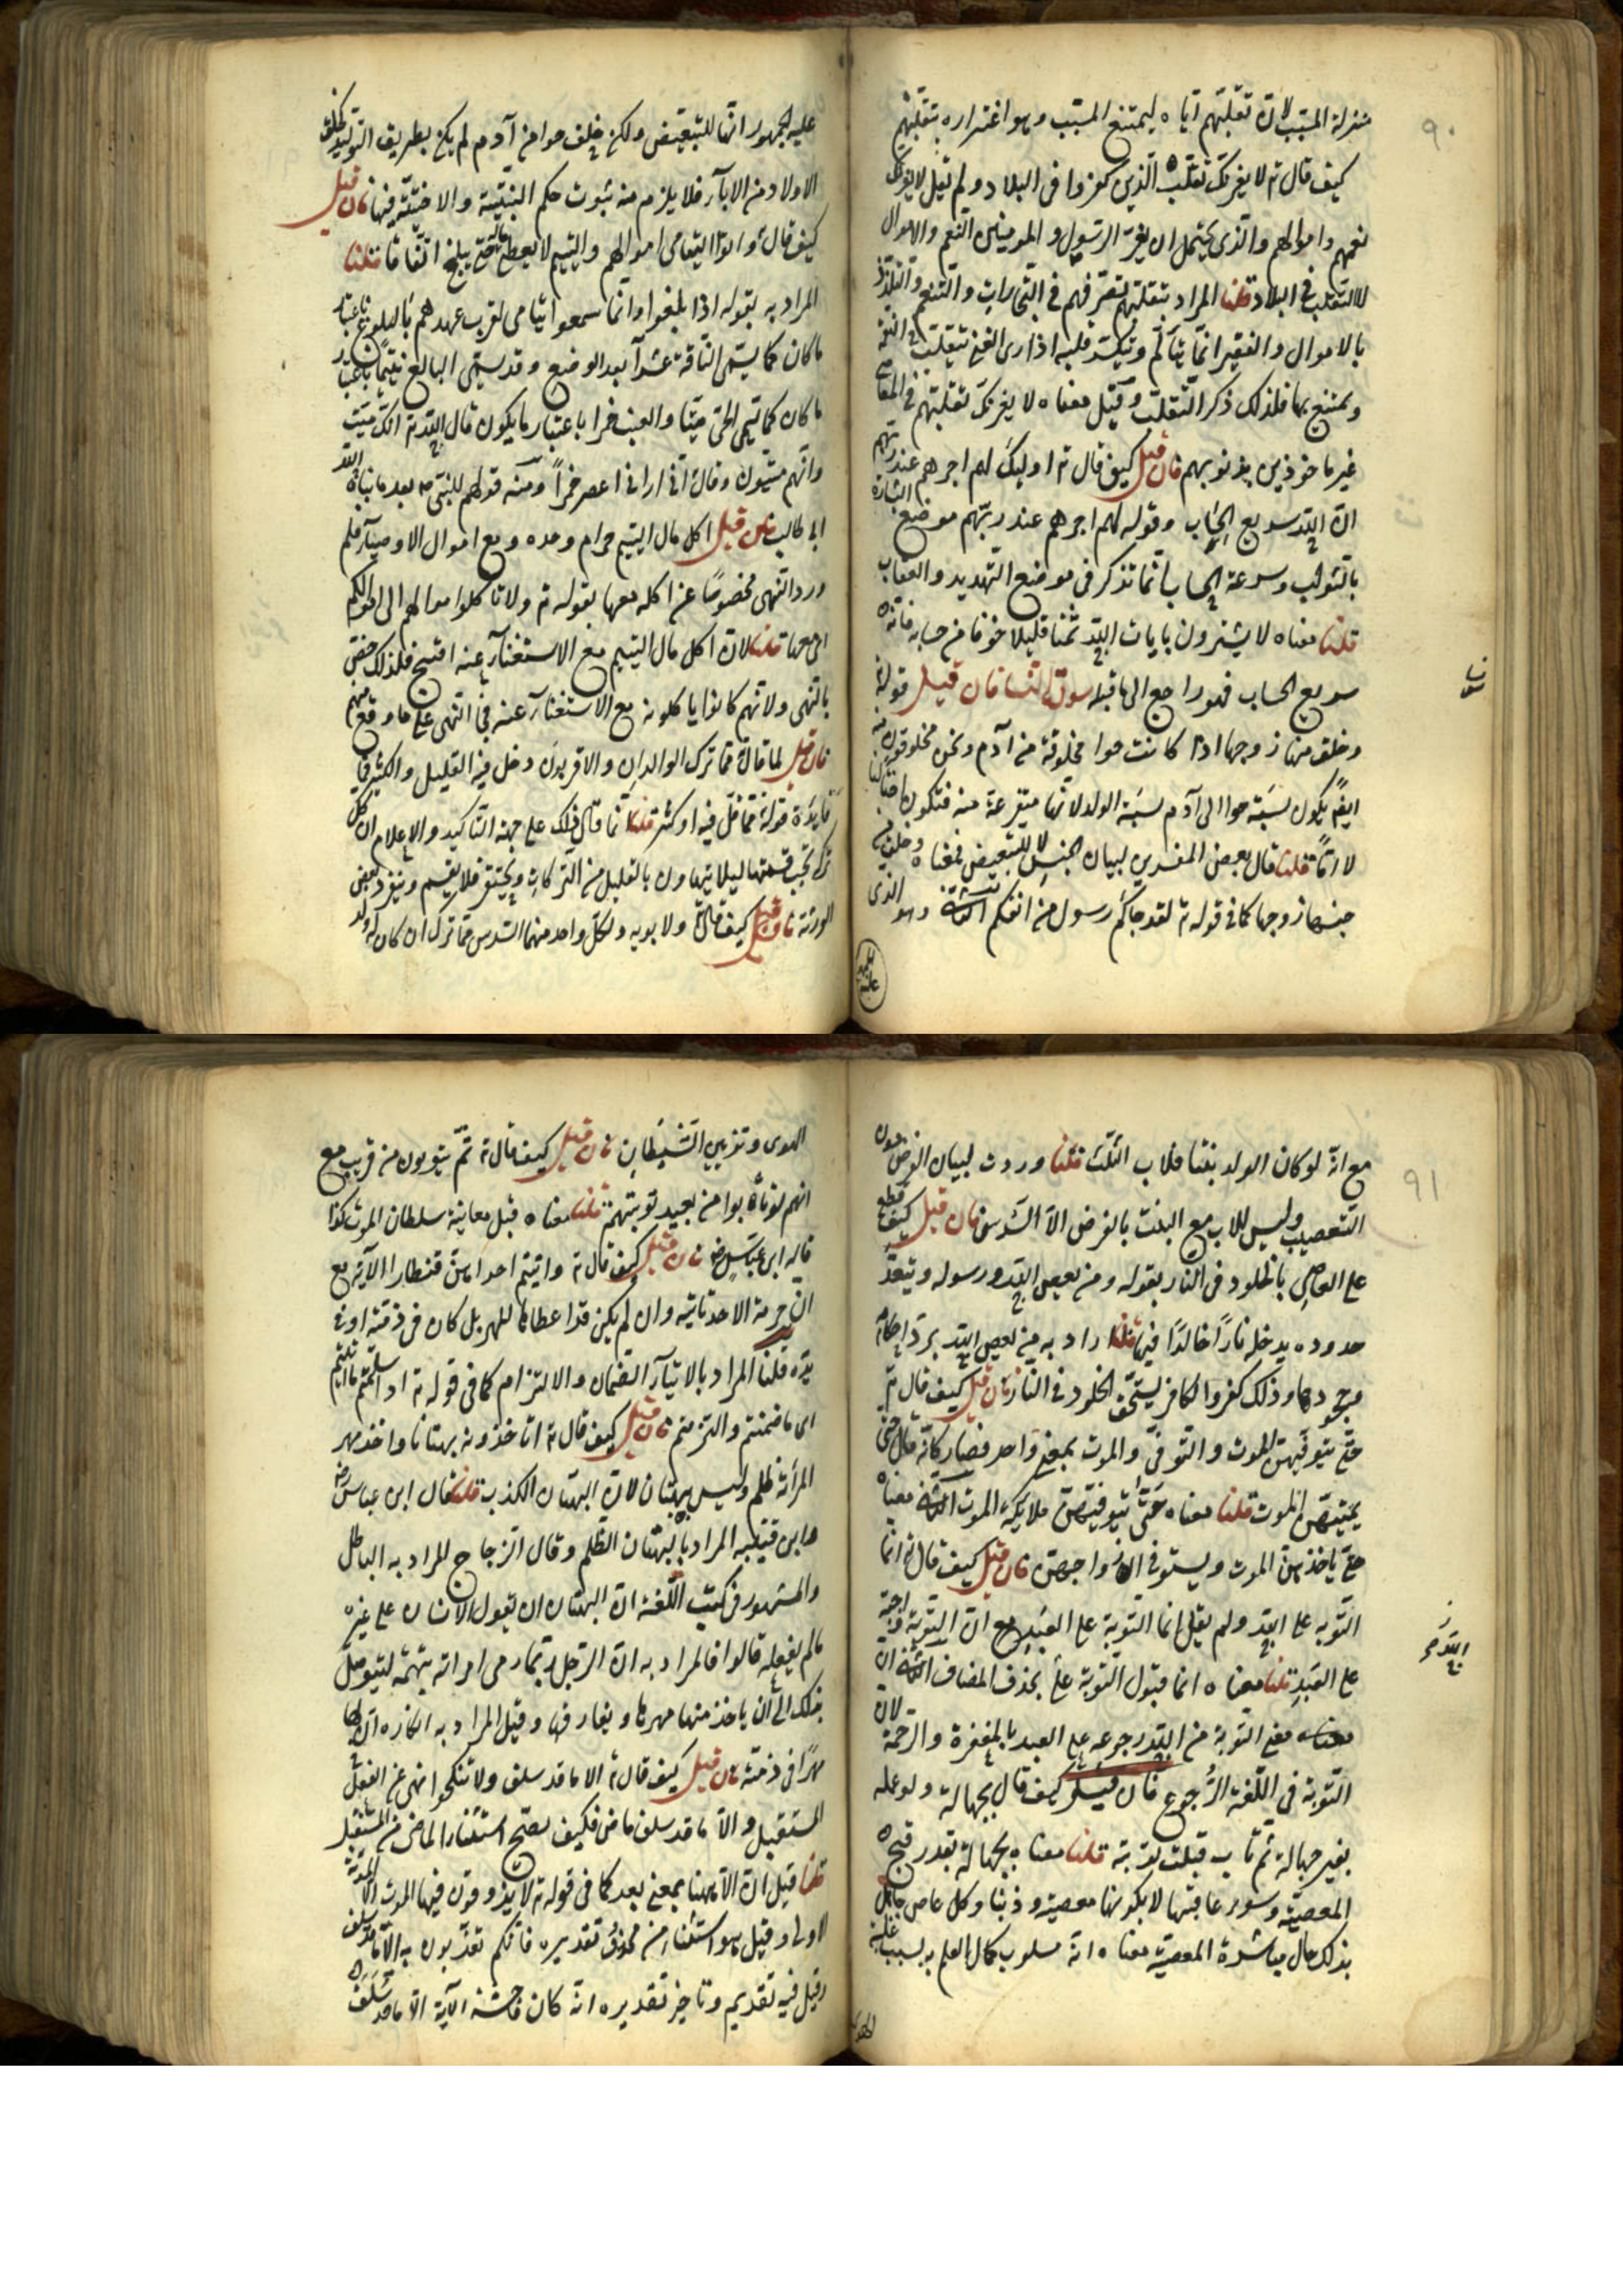 ٩٠
منزلة المسبب لان تقلبهم اياه ليمتنع المسبب وهو اغتراره بتقلبهم
كيف قال ته لا يغرنك تقلب الذين كفروا فى البلاد ولم يقل لا يغرنك
نعمهم واموالهم والذى يحتمل ان يغر الرسول والمومنين النعم والاموال
لا التقلب فى البلاد قلنا المراد بتقلبهم تصرفهم فى التجارات والتنعم والتلذذ
بالاموال والفقير انما يتألم وينكسر قلبه اذا رأى الغنى يتقلب فى النعمة
ويمتنع بها فلذلك ذكر التقلب وقيل معناه لا يغرنك تقلبهم فى المعاصى
غير ماخوذين بذنوبهم فان قيل كيف قال ته اوليك لهم اجرهم عند ربهم
ان الله سريع الحساب وقوله لهم اجرهم عند ربهم موضع البشارة
بالثواب وسرعة الحساب انما تذكر فى موضع التهديد والعقاب
قلنا معناه لا يشترون بايات الله ثمنا قليلا خوفا من حسابه فانه
سريع الحساب فهو راجع الى ما قبله سورة النسا فان قيل قوله ته
وخلق منها زوجها اذا كانت حوا مخلوقة من آدم ونحن مخلوقون منه
ايضً يكون نسبة حوا الى آدم نسبة الولد لانها متفرعة منه فتكون اختا لنا
لا امّاً قلنا قال بعض المفسرين لبيان الجنس لا للتبعيض فمعناه وخلق من
جنسها زوجها كما فى قوله ته لقد جاكم رسول من انفسكم الثانى وهو الذى
عليه الجمهور انها للتبعيض ولكن خلق حوا من آدم لم يكن بطريق التوليد كخلق
الاولاد من الاباء فلا يلزم منه ثبوت حكم البنتية والاختية فيها فان قيل
كيف قال ته واتوا اليتامى اموالهم واليتيم لا يعطى ماله حتى يبلغ اتفاقا قلنا
المراد به بقوله اذا بلغوا وانما سموا يتامى لقرب عهدهم بالبلوغ باعتبار
ما كان كما يسمى الناقة عشرآ بعد الوضع وقد يسمى البالغ يتيما باعتبار
ما كان كما تسمى الحى ميتا والعنب خمرا باعتبار ما يكون قال الله ته انك ميت
وانهم ميتون وقال انى ارانى اعصر خمراً ومنه قولهم للنبى ص بعد ما نباه الله
ابى طالب فان قيل اكل مال اليتيم حرام وحده ومع اموال الاوصيآء فلم
ورد النهى مخصوصًا عن اكله معها بقوله ته ولا تاكلوا اموالهم الى اموالكم
اى معها قلنا لان اكل مال اليتيم مع الاستغنآء عنه اقبح فلذلك خص
بالنهى ولانهم كانوا ياكلونه مع الاستغنآء عنه فجى النهى على ما وقع منهم
فان قيل لما قال ته مما ترك الوالدان والاقربون دخل فيه القليل والكثير فما
فايدة قوله ته مما قل فيه او كثر قلنا انما قال ذلك على جهة التاكيد والاعلام ان كل
تركة تجب قسمتها ليلا يتهاون بالقليل من التركات ويحتقر فلا يقسم وينفرد بعض
الورثة فان قيل كيف قال ته ولابويه ولكل واحد منهما السدس مما ترك ان كان له ولد
٩١
مع انه لو كان الولد بنتا فللاب الثلث قلنا وردت لبيان الفرض دون
التعصيب وليس للاب مع البنت بالفرض الا السدس فان قيل كيف قطع
على العاصى بالخلود فى النار بقوله ومن يعص الله ورسوله ويتعد
حدوده يدخله نارًا خالدًا فيها قلنا اراد به من يعص الله برد احكامه
وجحودها وذلك كفر والكافر يستحق الخلود فى النار فان قيل كيف قال ته
حتى يتوفيهن الموت والتوفى والموت بمعنى واحد فصار كانه قال حتى
يميتهن الموت قلنا معناه حتى يتوفيهن ملايكة الموت الثانى معناه
حتى ياخذهن الموت ويستوفى ارواحهن فان قيل كيف قال ته انما
التوبة على الله ولم يقل انما التوبة على العبد مع ان التوبة واجبة
على العبد قلنا معناه انما قبول التوبة على بحذف المضاف الثانى ان
معنى التوبة من الله رجوعه على العبد بالمغفرة والرحمة لان
التوبة فى اللغة الرُّجوع فان قيل كيف قال بجهالة ولو عمله
بغير جهالة ثم تاب قبلت توبته قلنا معناه بجهالة بقدر قبح
المعصية وسوء عاقبتها لا بكونها معصية وذنبا وكل عاص جاهل
بذلك حال مباشرة المعصية معناه انه مسلوب كمال العلم به بسبب غلبة
الهوى
الهوى وتزيين الشيطان فان قيل كيف قال ته ثم يتوبون من قريب مع
انهم لو تابوا من بعيد توبتهم قلنا معناه قبل معاينة سلطان الموت كذا
قاله ابن عباس رض فان قيل كيف قال ته واتيتم احداهن قنطارا الآية مع
ان حرمة الاخذ ثابتة وان لم يكن قد اعطاها المهر بل كان فى ذمته او فى
يده قلنا المراد بالايتآء الضمان والالتزام كما فى قوله ته اذا سلمتم ما اتيتم
اى ما ضمنتم والتزمتم فان قيل كيف قال ته اتاخذونه بهتانا واخذ مهر
المرأة ظلم وليس ببهتان لان البهتان الكذب قلنا قال ابن عباس رض
وابن قتيبه المراد بالبهتان الظلم وقال الزجاج المراد به الباطل
والمشهور فى كتب اللغة ان البهتان ان تقول الانسان على غيره
ما لم يفعله قالوا فالمراد به ان الرجل ربما رمى امراته بتهمة ليتوصل
بذلك الى ان ياخذ منها مهرها ويفارقها وقيل المراد به انكاره ان لها
مهرًا فى ذمته فان قيل كيف قال ته الا ما قد سلف ولا تنكحوا نهى عن الفعل
المستقبل والا ما قد سلف ماض فكيف يصح استثناء الماضى من المستقبل
قلنا قيل ان الا ههنا بمعنى بعد كما فى قوله ته لا يذوقون فيها الموت الا الموتة
الاولى وقيل هو استثناء من محذوف تقديره فانكم تعذبون به الا ما قد سلف
وقيل فيه تقديم وتاخير تقديره انه كان فاحشة الآية الا ما قد سلف